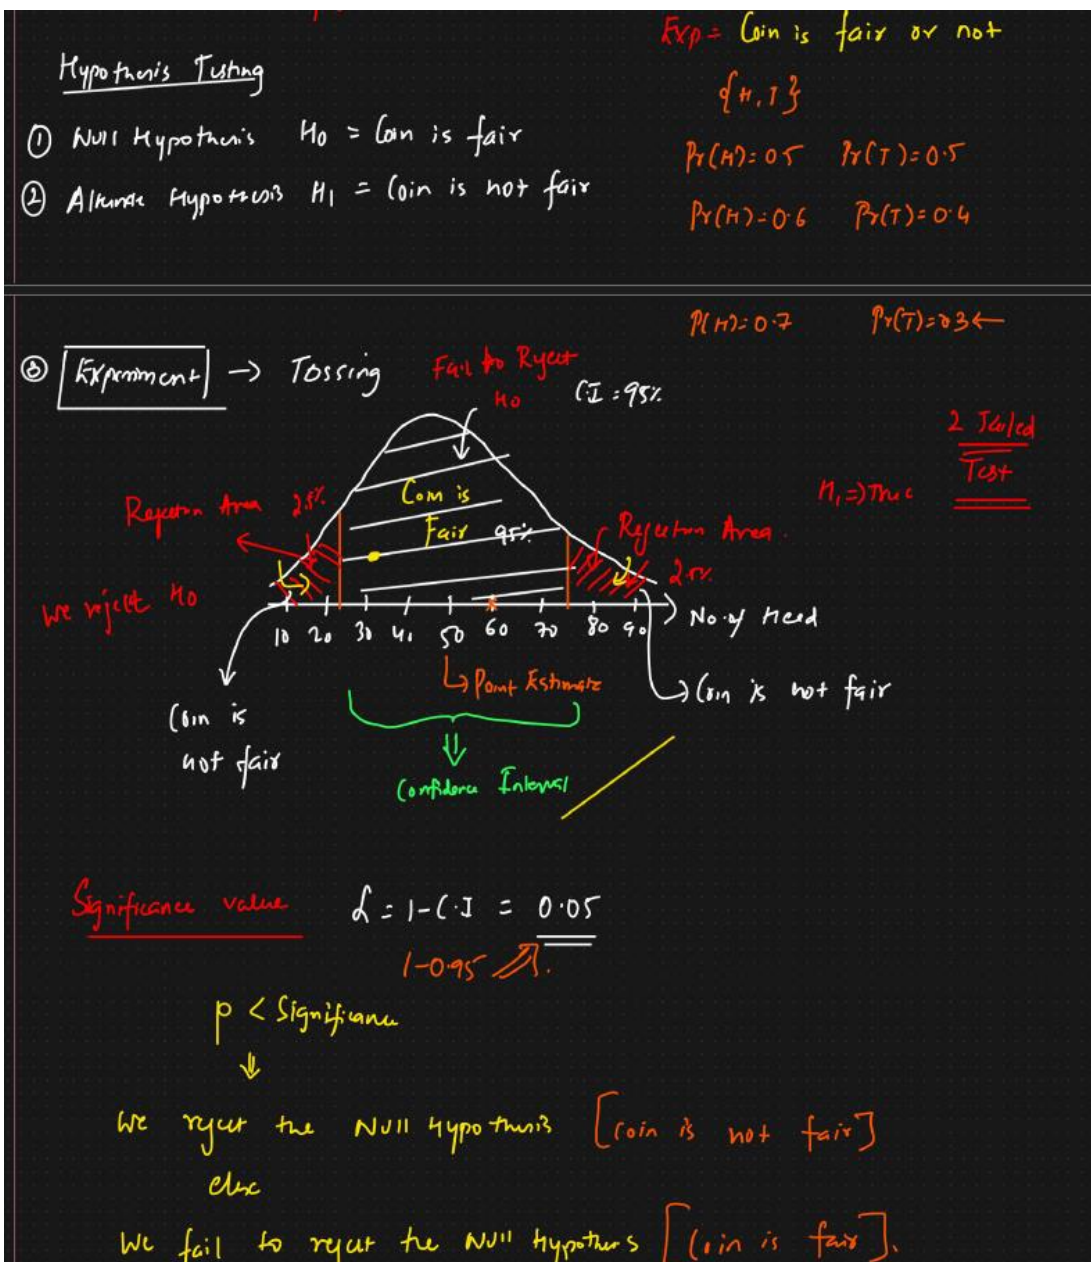 Exp = Coin is fair or not
Hypothesis Testing
{H, T}
① Null Hypothesis H0 = Coin is fair
Pr(H)=0.5 Pr(T)=0.5
② Alternate Hypothesis H1 = Coin is not fair
Pr(H)=0.6 Pr(T)=0.4
P(H)=0.7 Pr(T)=0.3 ←
③ Experiment → Tossing
Fail to Reject
H0
C.I = 95%
2 Tailed
Test
H1 => True
Rejection Area 2.5%
Coin is
Fair 95%
Rejection Area
2.5%
We reject H0
10 20 30 40 50 60 70 80 90
No. of Head
Point Estimate
Coin is not fair
Coin is
not fair
Confidence Interval
Significance value α = 1-C.I = 0.05
1-0.95
p < Significance
We reject the Null Hypothesis [Coin is not fair]
else
We fail to reject the Null Hypothesis [Coin is fair].